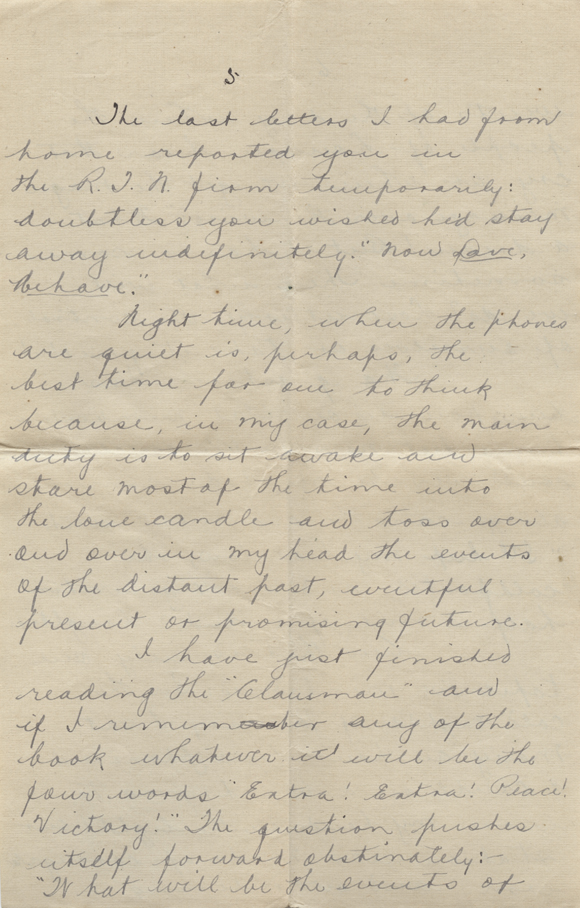 5
The last letters I had from
home reported you in
the R. I. N. firm temporarily:
doubtless you wished he'd stay
away indefinitely." Now Dave,
Behave."
Night time, when the phones
are quiet is, perhaps, the
best time for one to think
because, in my case, the main
duty is to sit awake and
stare most of the time into
the lone candle and toss over
and over in my head the events
of the distant past, eventful
present or promising future.
I have just finished
reading the "Clansman" and
if I remember any of the
book whatever it will be the
four words "Extra! Extra! Peace!
Victory!" The question pushes
itself forward obstinately:-
"What will be the events of